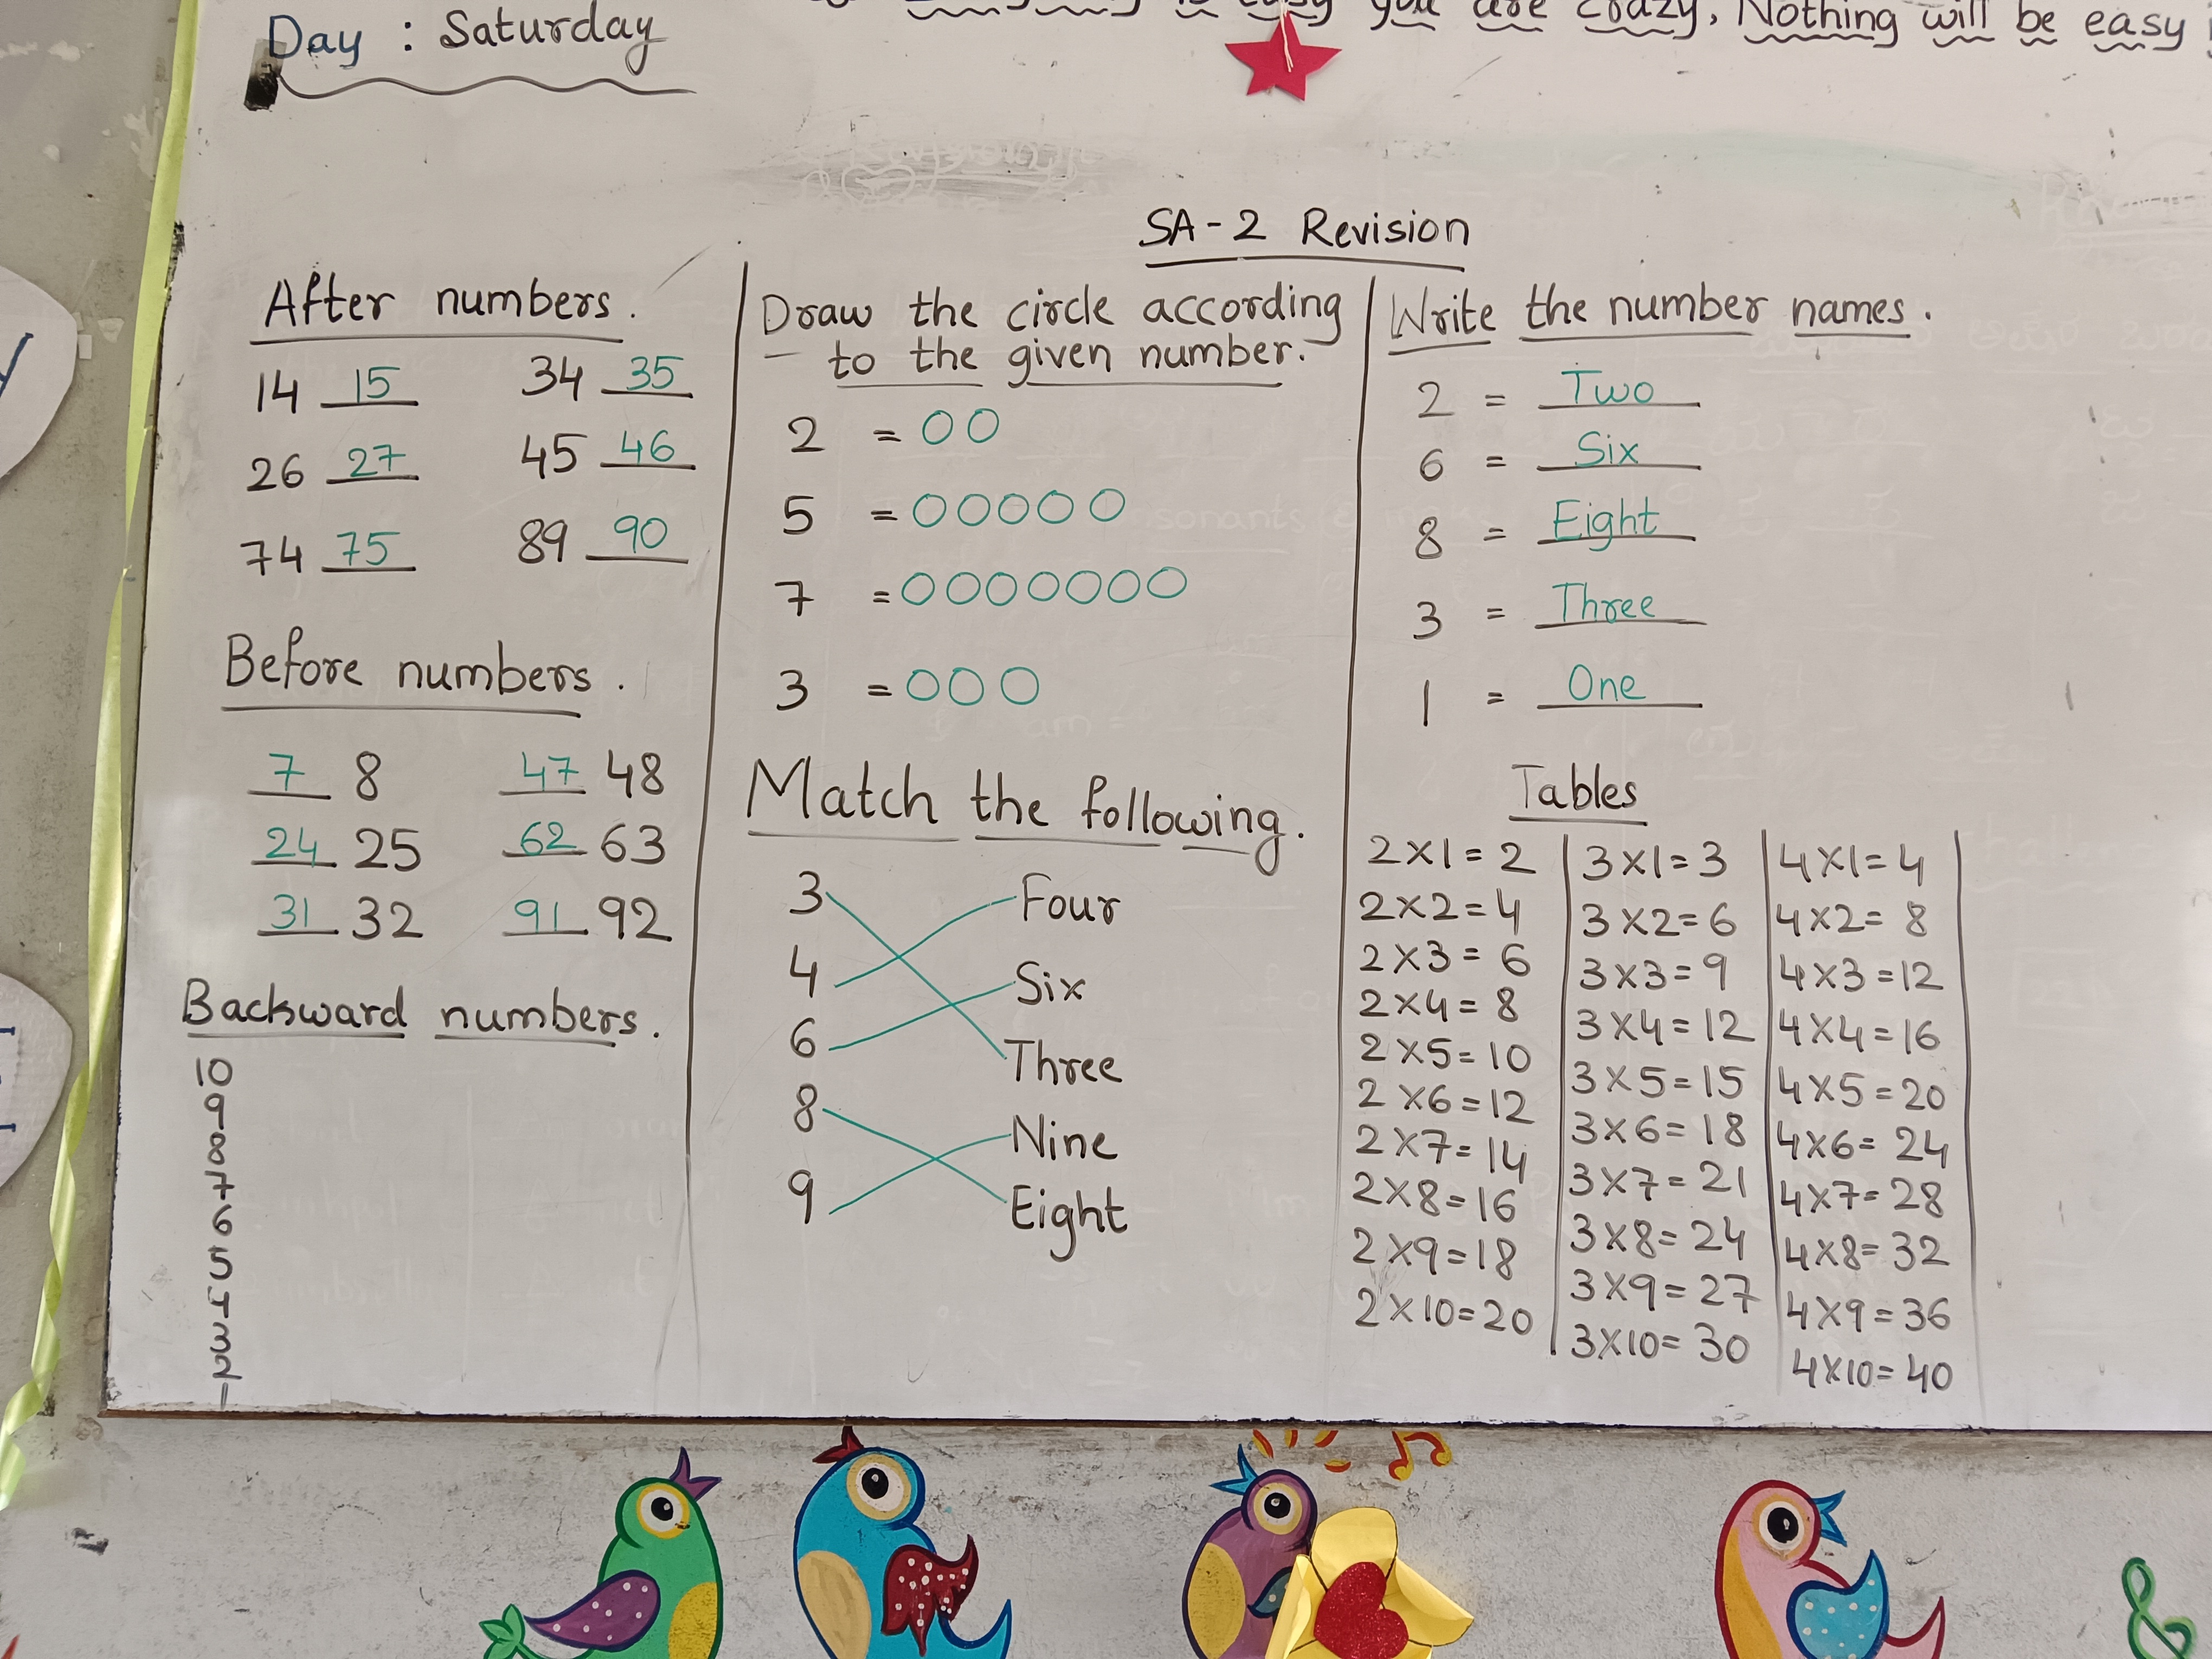 Day : Saturday
is easy you are crazy, Nothing will be easy
SA-2 Revision
After numbers.
14 15 34 35
26 27 45 46
74 75 89 90
Before numbers.
7 8 47 48
24 25 62 63
31 32 91 92
Backward numbers.
10
9
8
7
6
5
4
3
2
1
Draw the circle according
to the given number.
2 = OO
5 = OOOOO
7 = OOOOOOO
3 = OOO
Match the following.
3 Four
4 Six
6 Three
8 Nine
9 Eight
Write the number names.
2 = Two
6 = Six
8 = Eight
3 = Three
1 = One
Tables
2×1=2 3×1=3 4×1=4
2×2=4 3×2=6 4×2=8
2×3=6 3×3=9 4×3=12
2×4=8 3×4=12 4×4=16
2×5=10 3×5=15 4×5=20
2×6=12 3×6=18 4×6=24
2×7=14 3×7=21 4×7=28
2×8=16 3×8=24 4×8=32
2×9=18 3×9=27 4×9=36
2×10=20 3×10=30 4×10=40